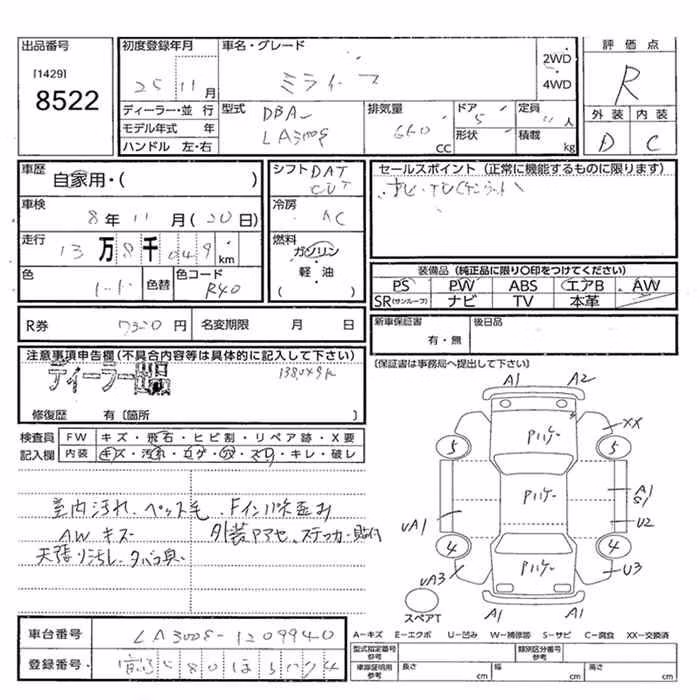 出品番号
[1429]
8522
初度登録年月
25 11 月
車名・グレード
ミライース
2WD
・
4WD
評価点
R
外装 内装
D C
ディーラー・並行
モデル年式 年
ハンドル 左・右
型式
DBA-
LA300S
排気量
660
CC
ドア
5
形状
定員
人
積載
kg
車歴
自家用・( )
車検
8年 11 月 (20日)
走行
13 万 8 千 049 km
色
色替
色コード
R40
シフト DAT
CVT
冷房
AC
燃料
ガソリン
軽・油
( )
セールスポイント (正常に機能するものに限ります)
装備品 (純正品に限り〇印をつけてください)
PS PW ABS エアB AW
SR(サンルーフ) ナビ TV 本革
R券
円
名変期限 月 日
新車保証書
有・無
後日品
注意事項申告欄(不具合内容等は具体的に記入して下さい)
ディーラー
138,049k
修復歴 有〔箇所 〕
〔保証書は事務局へ提出して下さい〕
検査員
記入欄
FW キズ・飛石・ヒビ割・リペア跡・X要
内装 キズ・汚れ・コゲ・穴・ヌリ・キレ・破レ
室内汚れ、ペット毛、Fインパネ歪み
AWキズ 外装ヤケアセ、ステッカー貼付
天張り汚レ、タバコ臭、
A1 A2
XX
5 5
Pハゲー
UA1
Pハゲー
A1
S1
U2
4 4
UA3
Pハゲー
U3
スペアT
A1 A1
車台番号
LA300S-1209940
登録番号
A─キズ E─エクボ U─凹み W─補修跡 S─サビ C─腐食 XX─交換済
型式指定番号
参考
類別区分番号
参考
車庫証明用
参考
長さ
cm
幅
cm
高さ
cm